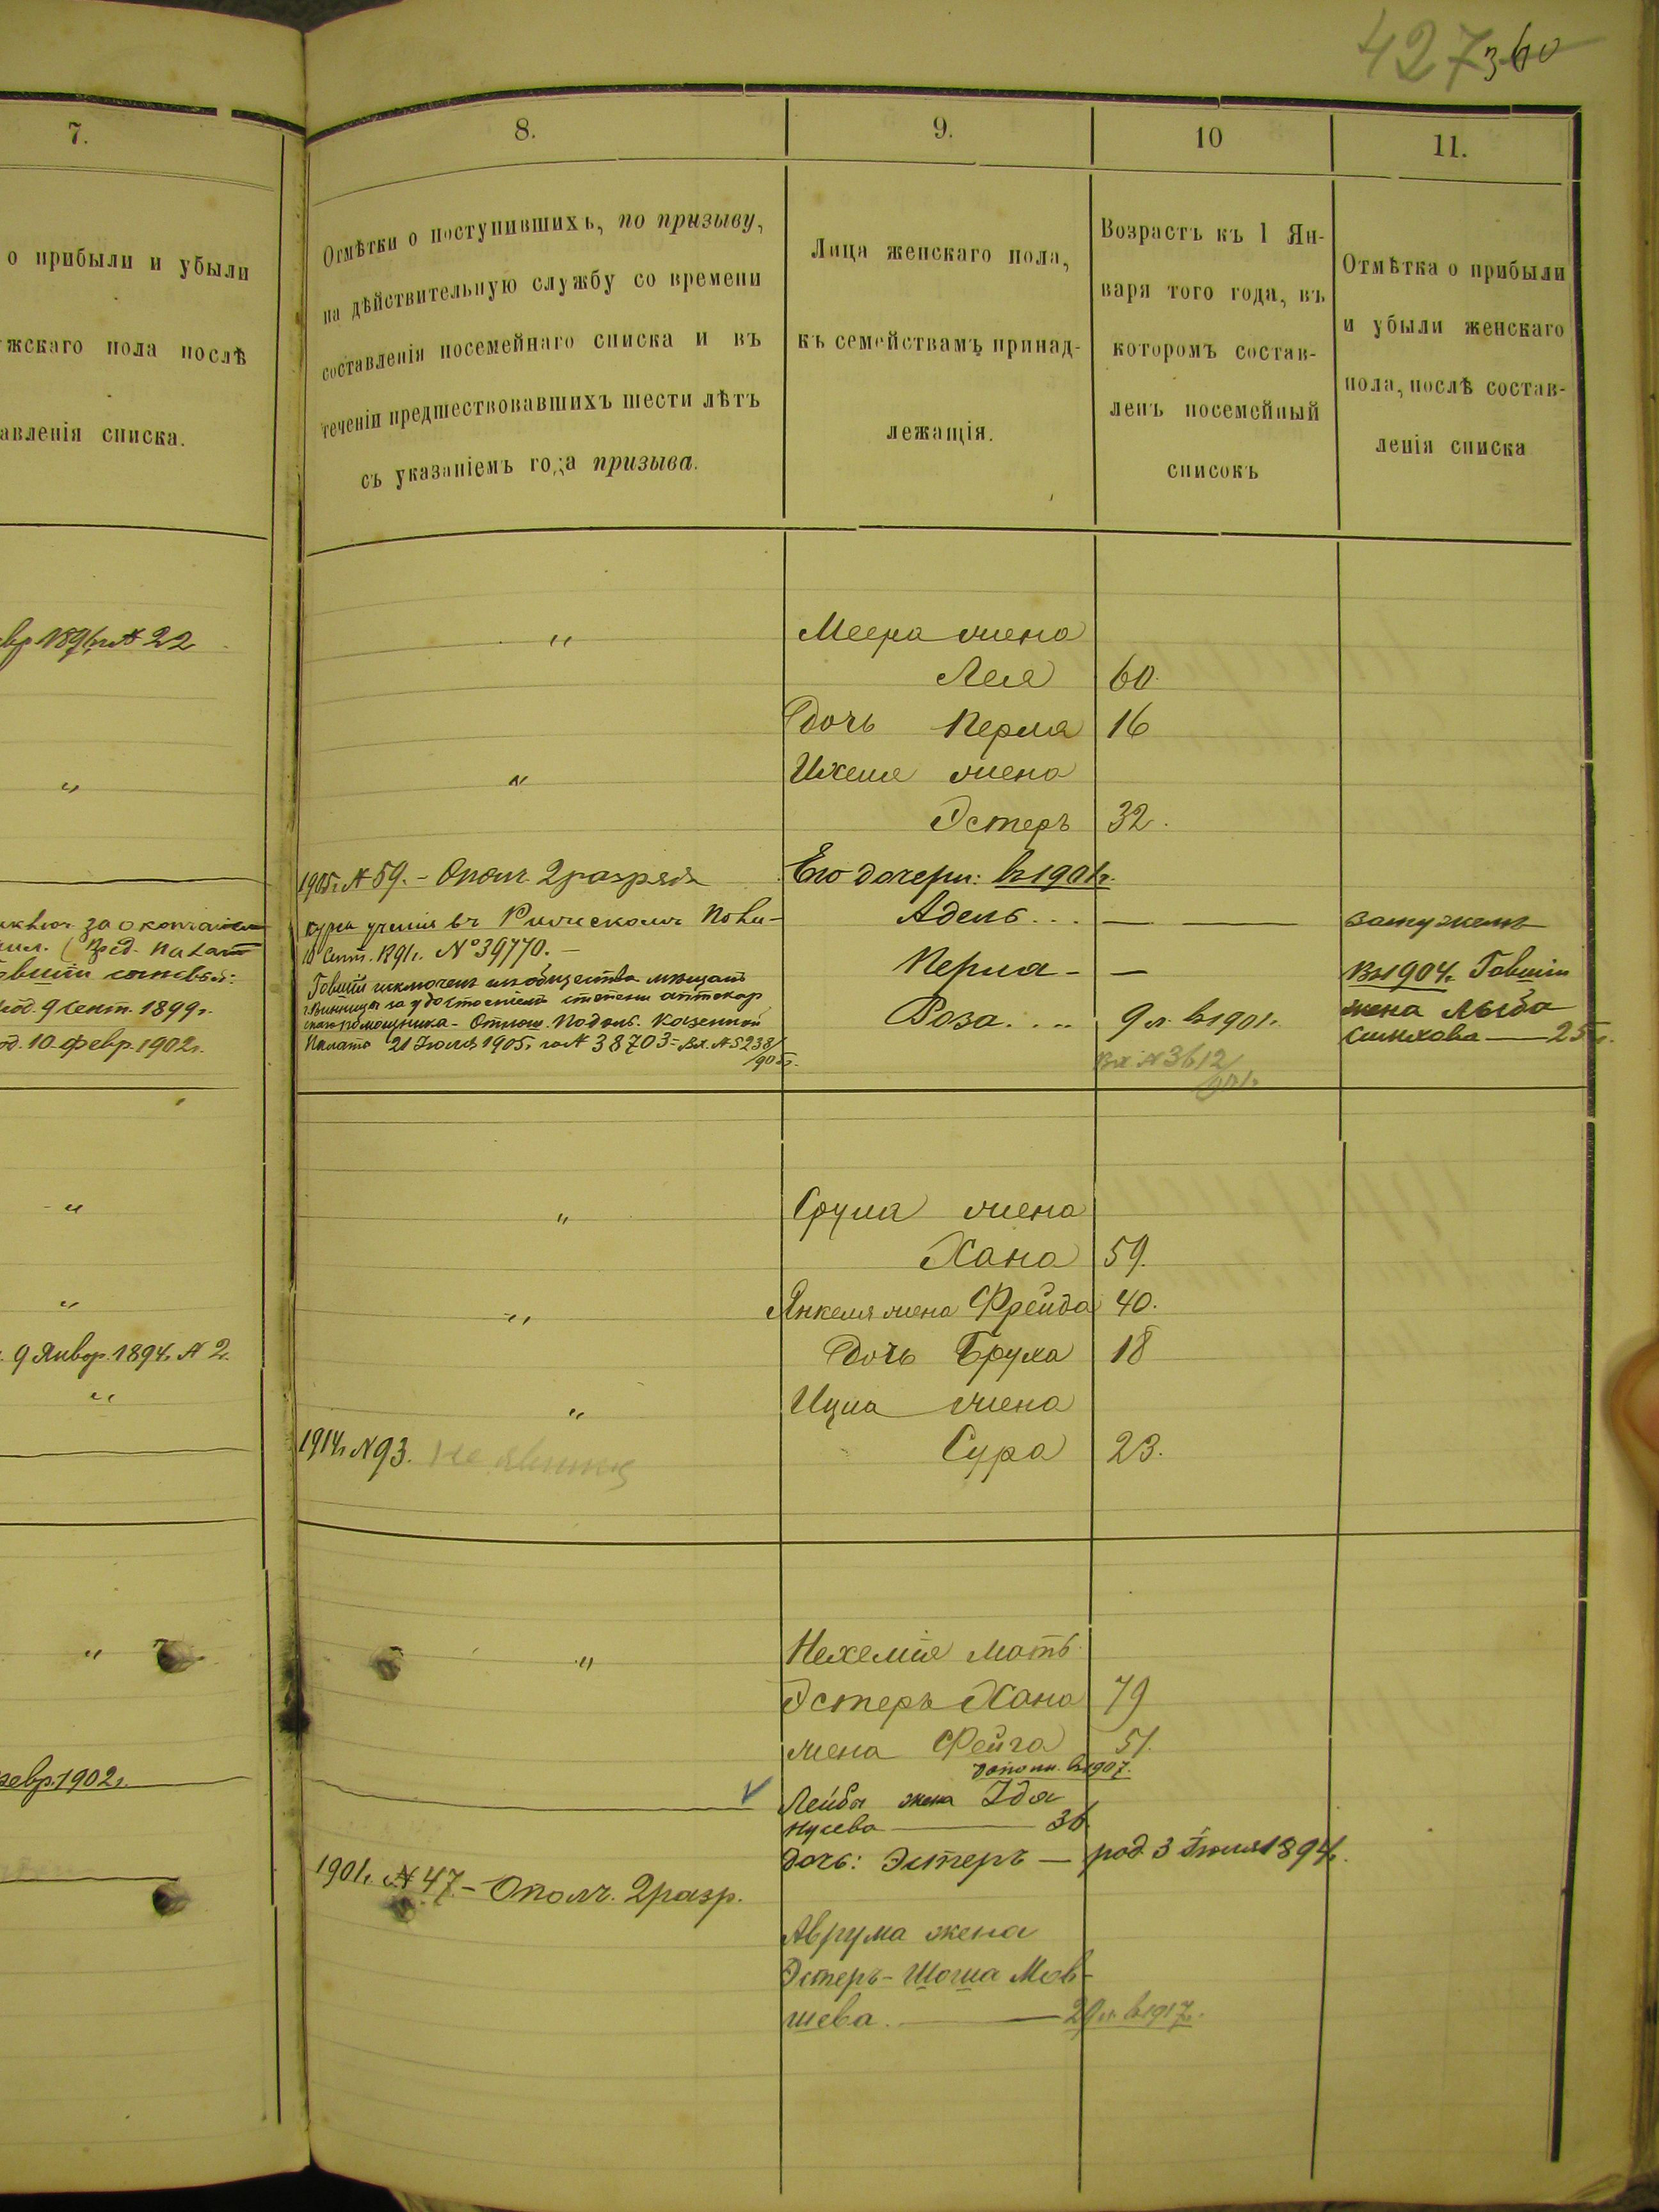 427 360
7.
о прибыли и убыли
жскаго пола послѣ
авленія списка.
вр. 1896 г. № 22
"
за окончаніем
род. 9 Сент. 1899 г.
од. 10 февр. 1902 г.
"
"
9 Январ. 1894 г. № 2.
"
"
февр. 1902 г.
8.
Отмѣтки о поступившихъ, по призыву,
на дѣйствительную службу со времени
составленія посемейнаго списка и въ
теченіи предшествовавшихъ шести лѣтъ
съ указаніемъ года призыва.
"
"
1905 г. № 59. - Ополч. 2 разряда
курса ученія въ
10 Сент. 1891 г. № 39770. -
Говшій исключенъ изъ общества мѣщанъ
г. Винницы за удостоеніемъ степени аптекар
скаго помощника - Отнош. Подоль. Казенной
Палаты 21 Іюля 1905 г. за № 38703 - Вх. № 5238/
905 г.
"
"
"
1914 г. № 93. Не явился
"
1901 г. № 47. - Ополч. 2 разр.
9.
Лица женскаго пола,
къ семействамъ принад-
лежащія.
Меера жена
Лея
Дочь Перля
Ихеля жена
Эстеръ
Его дочери: в 1901 г.
Адель...
Перла -
Роза....
Срула жена
Хана
Янкеля жена Фрейда
Дочь Бруха
Ицка жена
Сура
Нехеміе мать
Эстеръ Хана
жена Фейга
дополн. в 1907.
Лейбы жена Ідя
Нусева — 36
дочь: Эстеръ — род. 3 Іюля 1894 г.
Аврума жена
Эстеръ-Шоша Мов-
шева. — 29 л. в 1917 г.
10
Возрастъ къ 1 Ян-
варя того года, въ
которомъ состав-
ленъ посемейный
списокъ
60.
16
32.
—
—
9 л. в 1901 г.
Вх. № 3612/
901 г.
59.
40.
18
23.
79
51.
11.
Отмѣтка о прибыли
и убыли женскаго
пола, послѣ состав-
ленія списка
замужемъ
Въ 1904 г. Говшіи
жена Лыба
— 25 г.